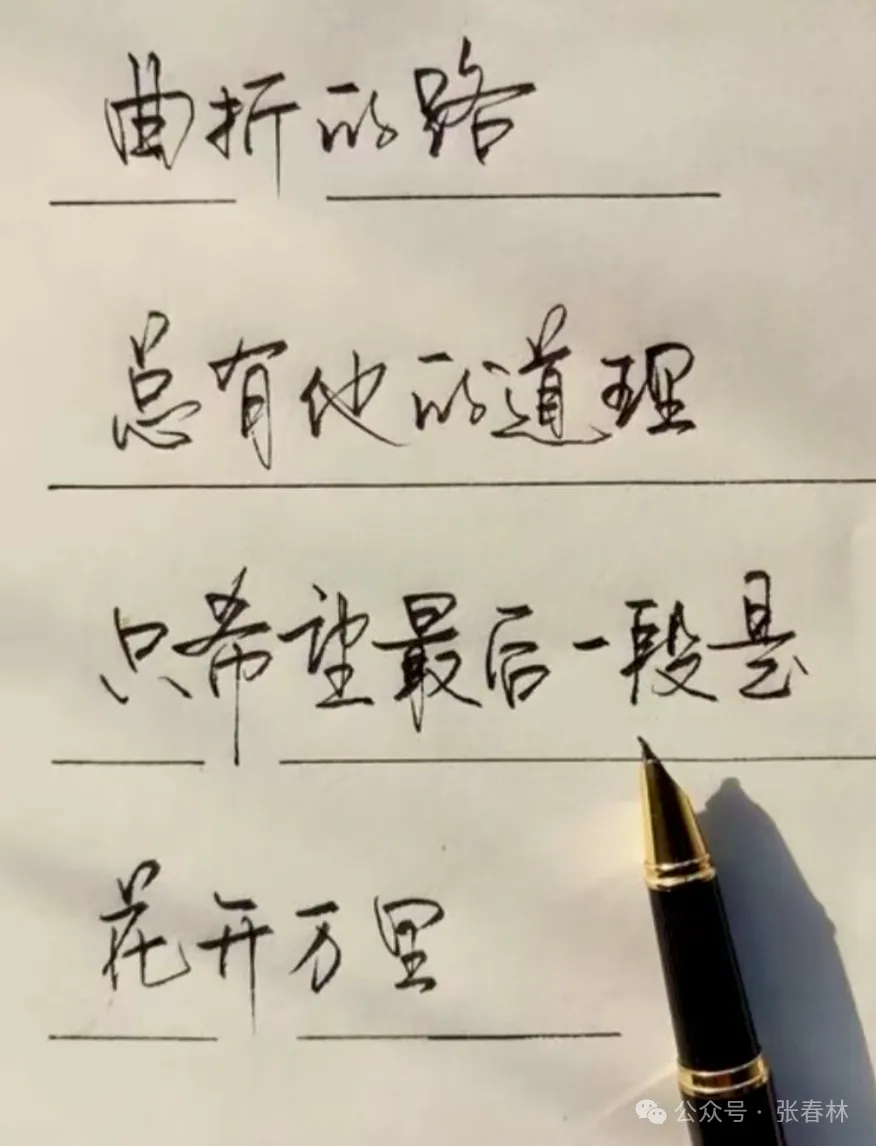 曲折的路
总有他的道理
只希望最后一段是
花开万里
公众号·张春林